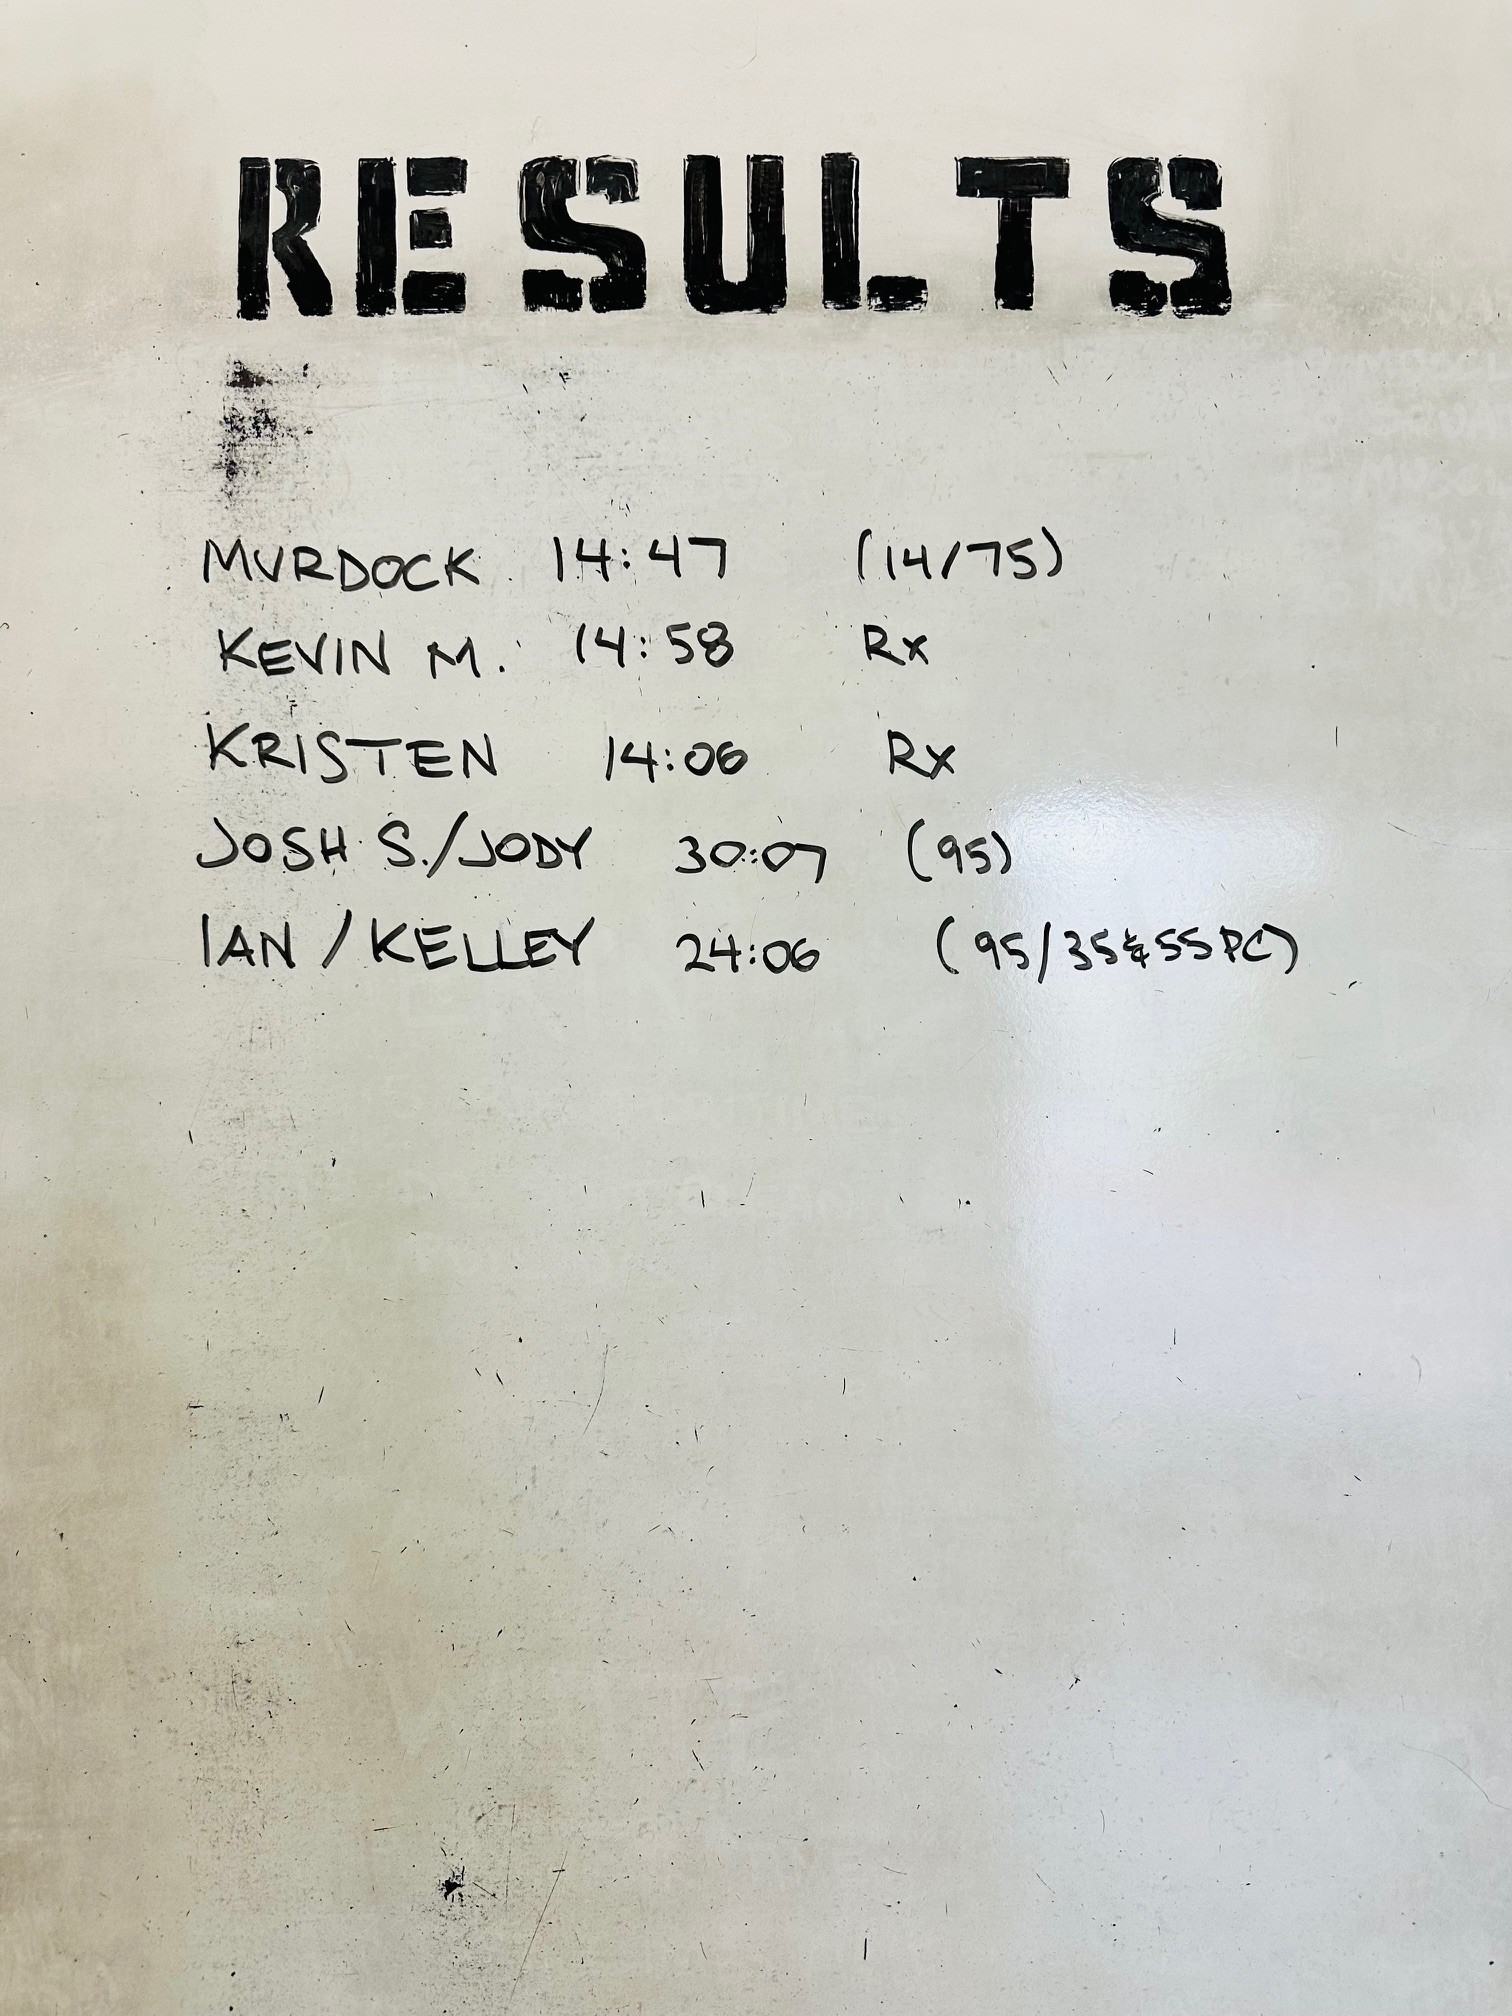 RESULTS
MURDOCK 14:47 (14/75)
KEVIN M. 14:58 Rx
KRISTEN 14:06 Rx
JOSH S./JODY 30:07 (95)
IAN / KELLEY 24:06 (95/35&55PC)